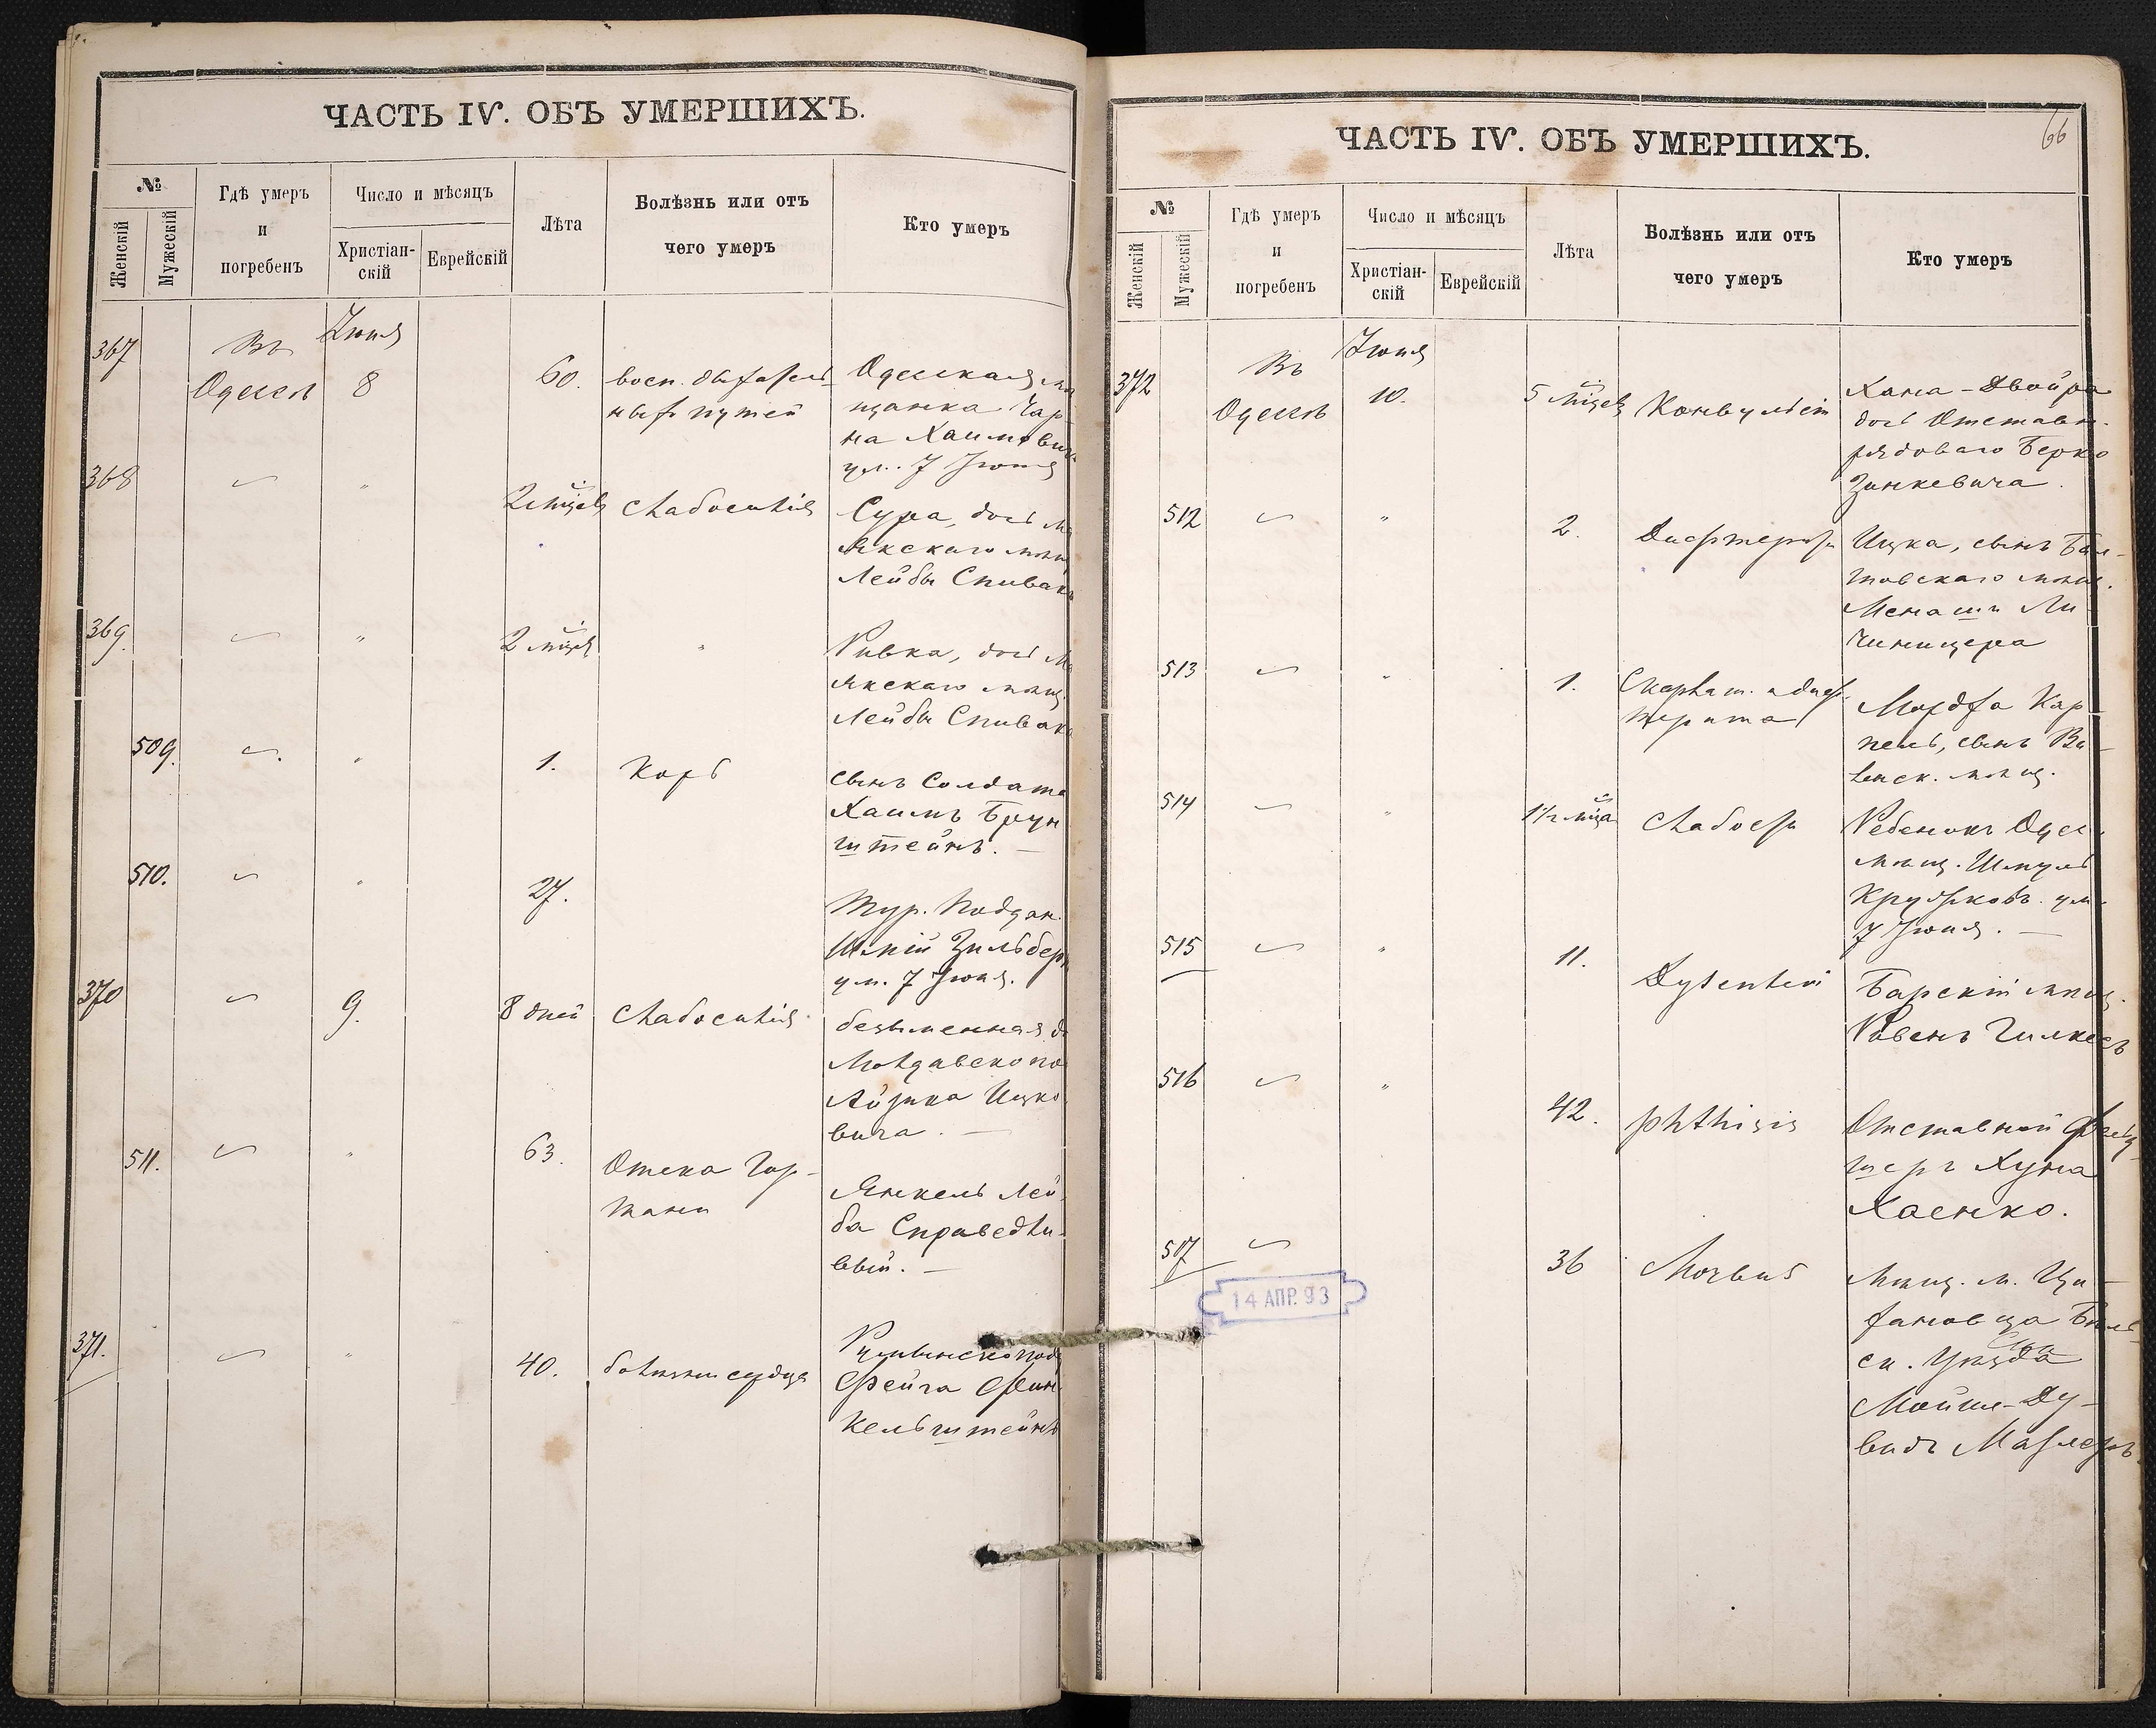 ЧАСТЬ IV. ОБЪ УМЕРШИХЪ.
№
Женскій
Мужескій
Гдѣ умеръ
и
погребенъ
Число и мѣсяцъ
Христіан-
скій
Еврейскій
Лѣта
Болѣзнь или отъ
чего умеръ
Кто умеръ
367
Въ
Одессѣ
Іюня
8
60.
восп. дыхатель-
ныхъ путей
Одесская
щанка Чар
на Хаимович
ум. 7 Іюня
368
2 мѣсяц
слабосилія
Сура, дочь Ма
якскаго мѣщ
Лейбы Спивака
369.
2 мѣсяц
Ривка, дочь Ма
якскаго мѣщ.
Лейбы Спивака
509.
1.
Корь
сынъ Солдата
Хаимъ Брун
штейнъ. —
510.
27.
Тур. Поддан.
Зильбер
ум. 7 Іюня.
370
9.
8 дней
слабосилія
безъименная д
Молдавско по
Айзика Ицко
вича. —
511.
63.
Отека Гор-
тани
Янкель Лей-
ба Справедли-
вый. —
371.
40.
болѣзни сердца
Румынско под
Фейга Фин-
кельштейнъ
ЧАСТЬ IV. ОБЪ УМЕРШИХЪ.
66
№
Женскій
Мужескій
Гдѣ умеръ
и
погребенъ
Число и мѣсяцъ
Христіан-
скій
Еврейскій
Лѣта
Болѣзнь или отъ
чего умеръ
Кто умеръ
372
Въ
Одессѣ
Іюня
10.
5 мѣсяц
Конвульсіи
Хана-Двойра
дочь Отставн.
рядоваго Берко
Зинкевича.
512
2.
Ицка, сынъ Бал-
товскаго мѣщ.
Менаши Ли-
чиницера
513
1.
Скарлат. и диф-
терита
Мордха Кар-
пель, сынъ Ва-
мѣщ.
514
1½ мѣсяца
слабости
Ребенокъ Одес.
мѣщ. Шмуль
Кружковъ. ум.
7 Іюня. —
515
11.
Dysenteri
Барскій мѣщ.
Рувенъ Гилкесъ
516
42.
phthisis
Отставной Фельд-
шеръ Хуна
Хаенко.
517
36
Morbus
Мѣщ. м. Цы-
уѣзда
Мойше-Ду-
видъ
14 АПР. 93